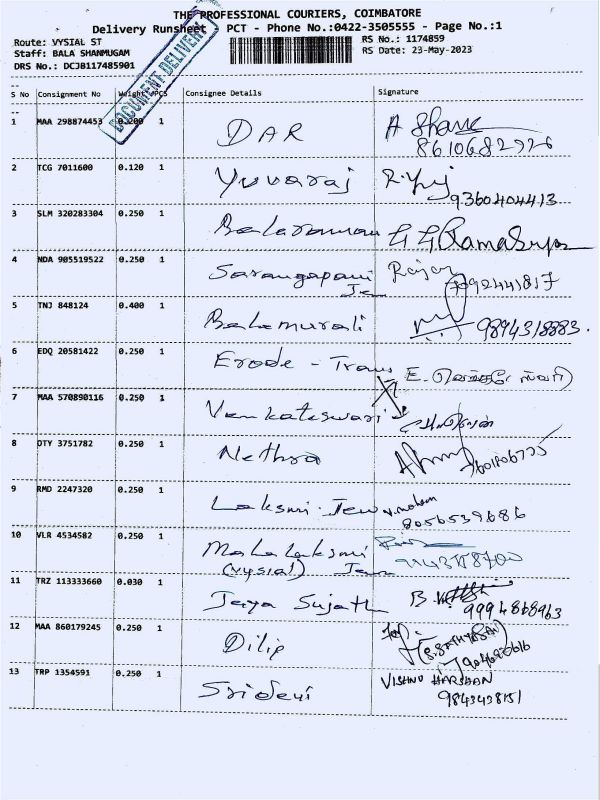 THE PROFESSIONAL COURIERS, COIMBATORE
Delivery Runsheet PCT - Phone No.:0422-3505555 - Page No.:1
Route: VYSIAL ST RS No.: 1174859
Staff: BALA SHANMUGAM RS Date: 23-May-2023
DRS No.: DCJB117485901
DOCUMENT DELIVERY
S No Consignment No Weight PCS Consignee Details Signature
1 MAA 298874453 0.200 1 DAR A
8610682926
2 TCG 7011600 0.120 1 Yuvaraj
9360404413
3 SLM 320283304 0.250 1 Balaraman
4 NDA 905519522 0.250 1 Sarangapani Rajar
Je 7092441817
5 TNJ 848124 0.400 1 Balamurali 9894318883.
6 EDQ 20581422 0.250 1 Erode - Trans E.
7 MAA 570890116 0.250 1 Venkateswari
8 OTY 3751782 0.250 1 Nethra
9 RMD 2247320 0.250 1 Laksmi. Jew v.mohan
8056539686
10 VLR 4534582 0.250 1 Mahalaksmi
(vysial) Jew
11 TRZ 113333660 0.030 1 Jaya Sujath B.
9994868963
12 MAA 860179245 0.250 1 Dilip
13 TRP 1354591 0.250 1 Sridevi VISHNU HARSHAN
9843438151